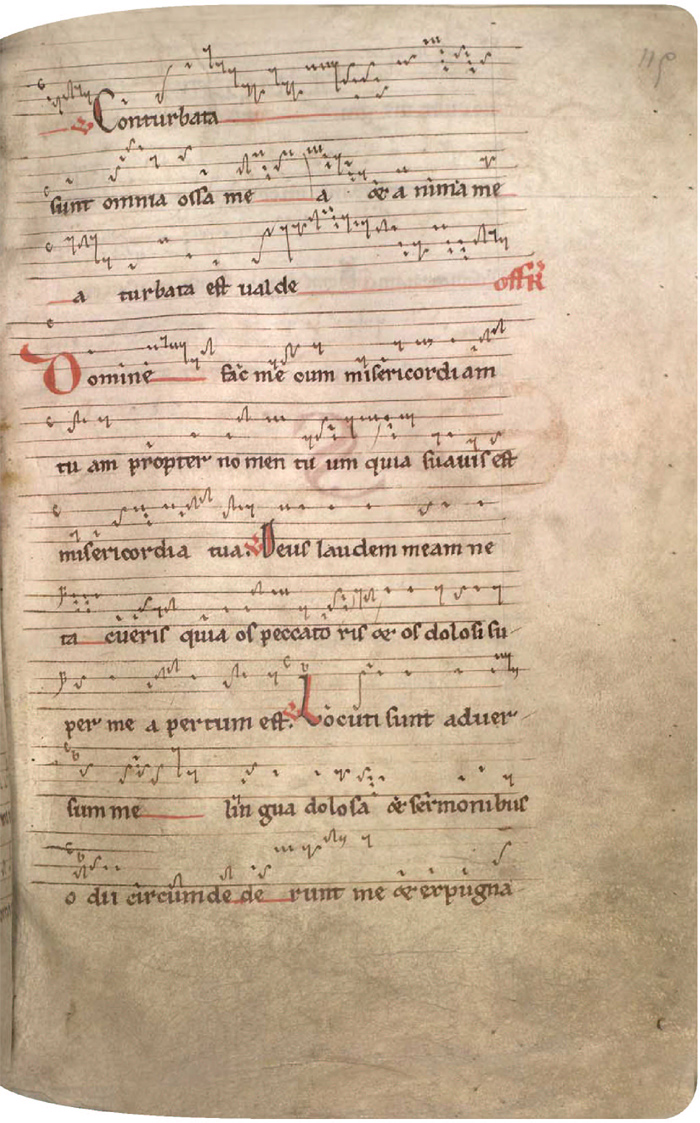 119
℣ Conturbata
sunt omnia ossa me a & a nima me
a turbata est ualde offr̄
Domine fac me cum misericordi am
tu am propter no men tu um quia suauis est
misericordia tua. ℣ Deus laudem meam ne
ta cueris quia os peccato ris & os dolosi su
per me a pertum est. ℣ Locuti sunt aduer
sum me lin gua dolosa & sermonibus
o dii circumde de runt me & expugna